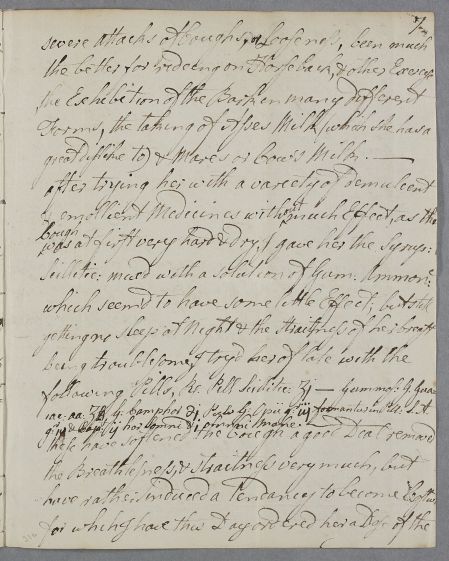 severe attacks of Coughs, or Looseness, been much
the better for Rideing on Horseback, & other Exercise
the Exhibition of the Bark in many different
Forms, the taking of Asses Milk (which she has a
great dislike to) & Mares or Cow's Milk. —
after trying her with a variety of Demulcent
& emollient Medicines without much Effect, as the
Cough
was at first very hard & dry, I gave her the Syrup:
Scillitic: mixed with a solution of Gum: Ammon:
which seem'd to have some little Effect; but still
getting no sleep at Night & the straitness of her breast
being troublesome, I try'd her of late with the
following Pills, Rc. Pill Scillitic: ʒj — Gummos: G. Gua
iac: aa: Camphor
hor: somni & omni mane.
these have softened the Cough a good Deal remov'd
the Breathlesness, & Straitness very much, but
have rather induced a Tendancy to become Costive
for which I have this Day ordered her a Dose of the